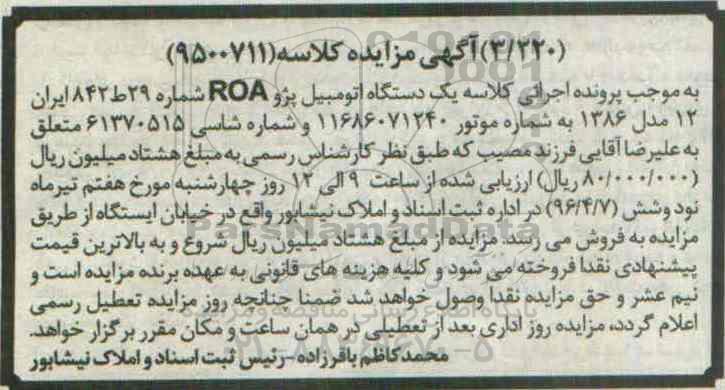 (۳/۲۲۰)آگهی مزایده کلاسه(۹۵۰۰۷۱۱)
به موجب پرونده اجرائی کلاسه یک دستگاه اتومبیل پژو ROA شماره ۲۹ط۸۴۲ ایران
۱۲ مدل ۱۳۸۶ به شماره موتور ۱۱۶۸۶۰۷۱۲۴۰ و شماره شاسی ۶۱۳۷۰۵۱۵ متعلق
به علیرضا آقایی فرزند مصیب که طبق نظر کارشناس رسمی به مبلغ هشتاد میلیون ریال
(۸۰/۰۰۰/۰۰۰ ریال) ارزیابی شده از ساعت ۹ الی ۱۲ روز چهارشنبه مورخ هفتم تیرماه
نود وشش (۹۶/۴/۷) در اداره ثبت اسناد و املاک نیشابور واقع در خیابان ایستگاه از طریق
مزایده به فروش می رسد. مزایده از مبلغ هشتاد میلیون ریال شروع و به بالاترین قیمت
پیشنهادی نقدا فروخته می شود و کلیه هزینه های قانونی به عهده برنده مزایده است و
نیم عشر و حق مزایده نقدا وصول خواهد شد ضمنا چنانچه روز مزایده تعطیل رسمی
اعلام گردد، مزایده روز اداری بعد از تعطیلی در همان ساعت و مکان مقرر برگزار خواهد.
محمدکاظم باقرزاده -رئیس ثبت اسناد و املاک نیشابور
ParsNamadData
پایگاه اطلاع رسانی مناقصه و مزایده